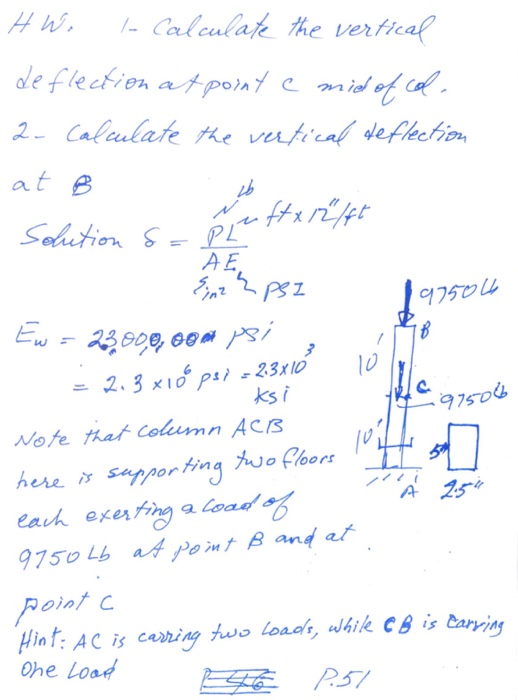 HW. 1- Calculate the vertical
deflection at point C mid of col.
2- Calculate the vertical deflection
at B
lb
ft x 12"/ft
Solution δ = PL
AE
in² PSI
9750 Lb
B
Ew = 23,000,000 psi
10'
= 2.3 x 10⁶ psi = 2.3 x 10³
ksi
C
9750 Lb
Note that column ACB
10'
5"
here is supporting two floors
A 2.5"
each exerting a load of
9750 Lb at point B and at
point C
Hint: AC is carrying two loads, while CB is carrying
One Load
P.51